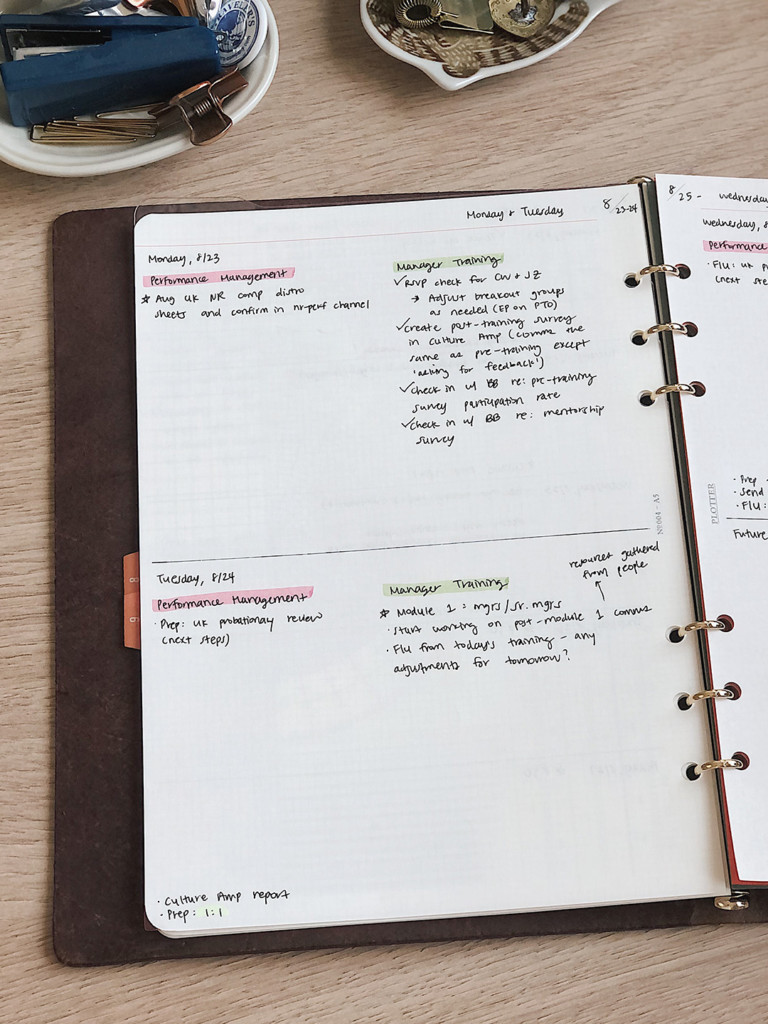 Monday & Tuesday
8/23-24
Monday, 8/23
Performance Management
☆ Aug UK NR comp distro
sheets and confirm in nr-perf channel
Manager Training
✓RSVP check for CW & JZ
→ Adjust breakout groups
as needed (EP on PTO)
✓create post-training survey
in culture Amp (comms the
same as pre-training except
'asking for feedback')
✓check in w/ BB re: pre-training
survey participation rate
✓check in w/ BB re: mentorship
survey
Nº004-A5
Tuesday, 8/24
Performance Management
· Prep: UK probationary review
(next steps)
resources gathered
from people
Manager Training
☆ Module 1 = mgrs/sr. mgrs
· start working on post-module 1 comms
· Flu from today's training - any
adjustments for tomorrow?
· Culture Amp report
· Prep: 1:1
8/25 - wednesday
wednesday, 8
Performance
· Flu: UK
(next
· Prep
· Send
· Flu:
PLOTTER
Future